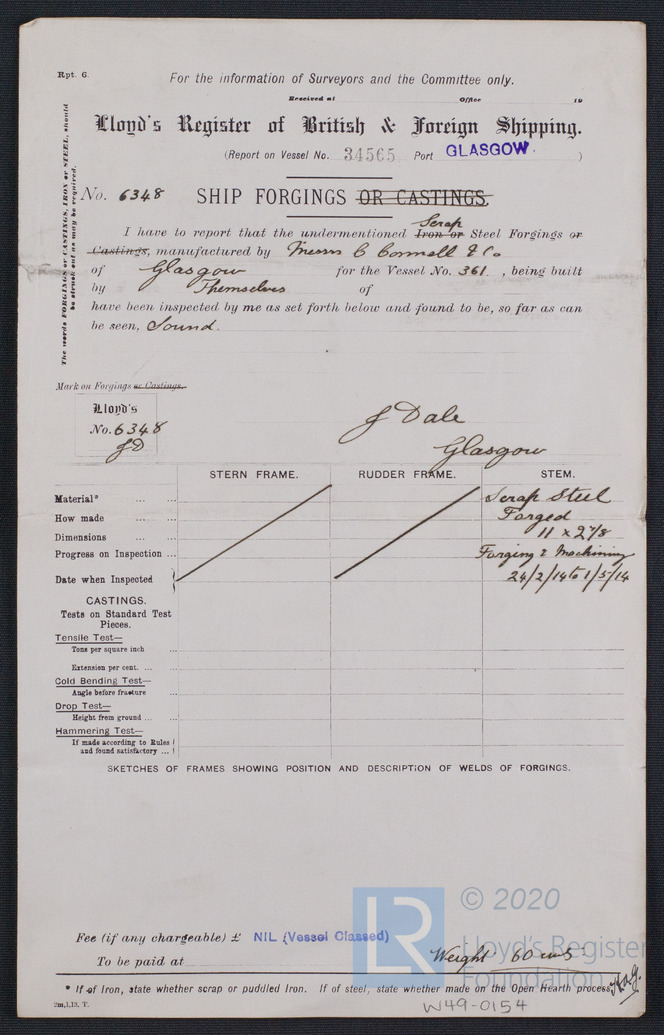 Rpt. 6.
For the information of Surveyors and the Committee only.
Received at Office 19
Lloyd's Register of British & Foreign Shipping.
(Report on Vessel No. 34565 Port GLASGOW. )
The words FORGINGS or CASTINGS, IRON or STEEL, should
be struck out as may be required.
No. 6348 SHIP FORGINGS OR CASTINGS.
I have to report that the undermentioned Iron or Scrap Steel Forgings or
Castings, manufactured by Messrs C Connell & Co
of Glasgow for the Vessel No. 361. , being built
by Themselves of
have been inspected by me as set forth below and found to be, so far as can
be seen, Sound.
Mark on Forgings or Castings.
Lloyd's
No. 6348
JD
J Dale
Glasgow
STERN FRAME. RUDDER FRAME. STEM.
Material* ... ... Scrap Steel
How made ... ... Forged
Dimensions ... ... 11 x 2 7/8
Progress on Inspection ... Forging & Machining
Date when Inspected 24/2/14 to 1/5/14
CASTINGS.
Tests on Standard Test
Pieces.
Tensile Test—
Tons per square inch ...
Extension per cent. ... ...
Cold Bending Test—
Angle before fracture ...
Drop Test—
Height from ground ... ...
Hammering Test—
If made according to Rules
and found satisfactory ...
SKETCHES OF FRAMES SHOWING POSITION AND DESCRIPTION OF WELDS OF FORGINGS.
LR © 2020
Lloyd's Register
Foundation
Fee (if any chargeable) £ NIL (Vessel Classed)
To be paid at Weight 60 cwts
* If of Iron, state whether scrap or puddled Iron. If of steel, state whether made on the Open Hearth process.
2m,1,13. T.
W49-0154